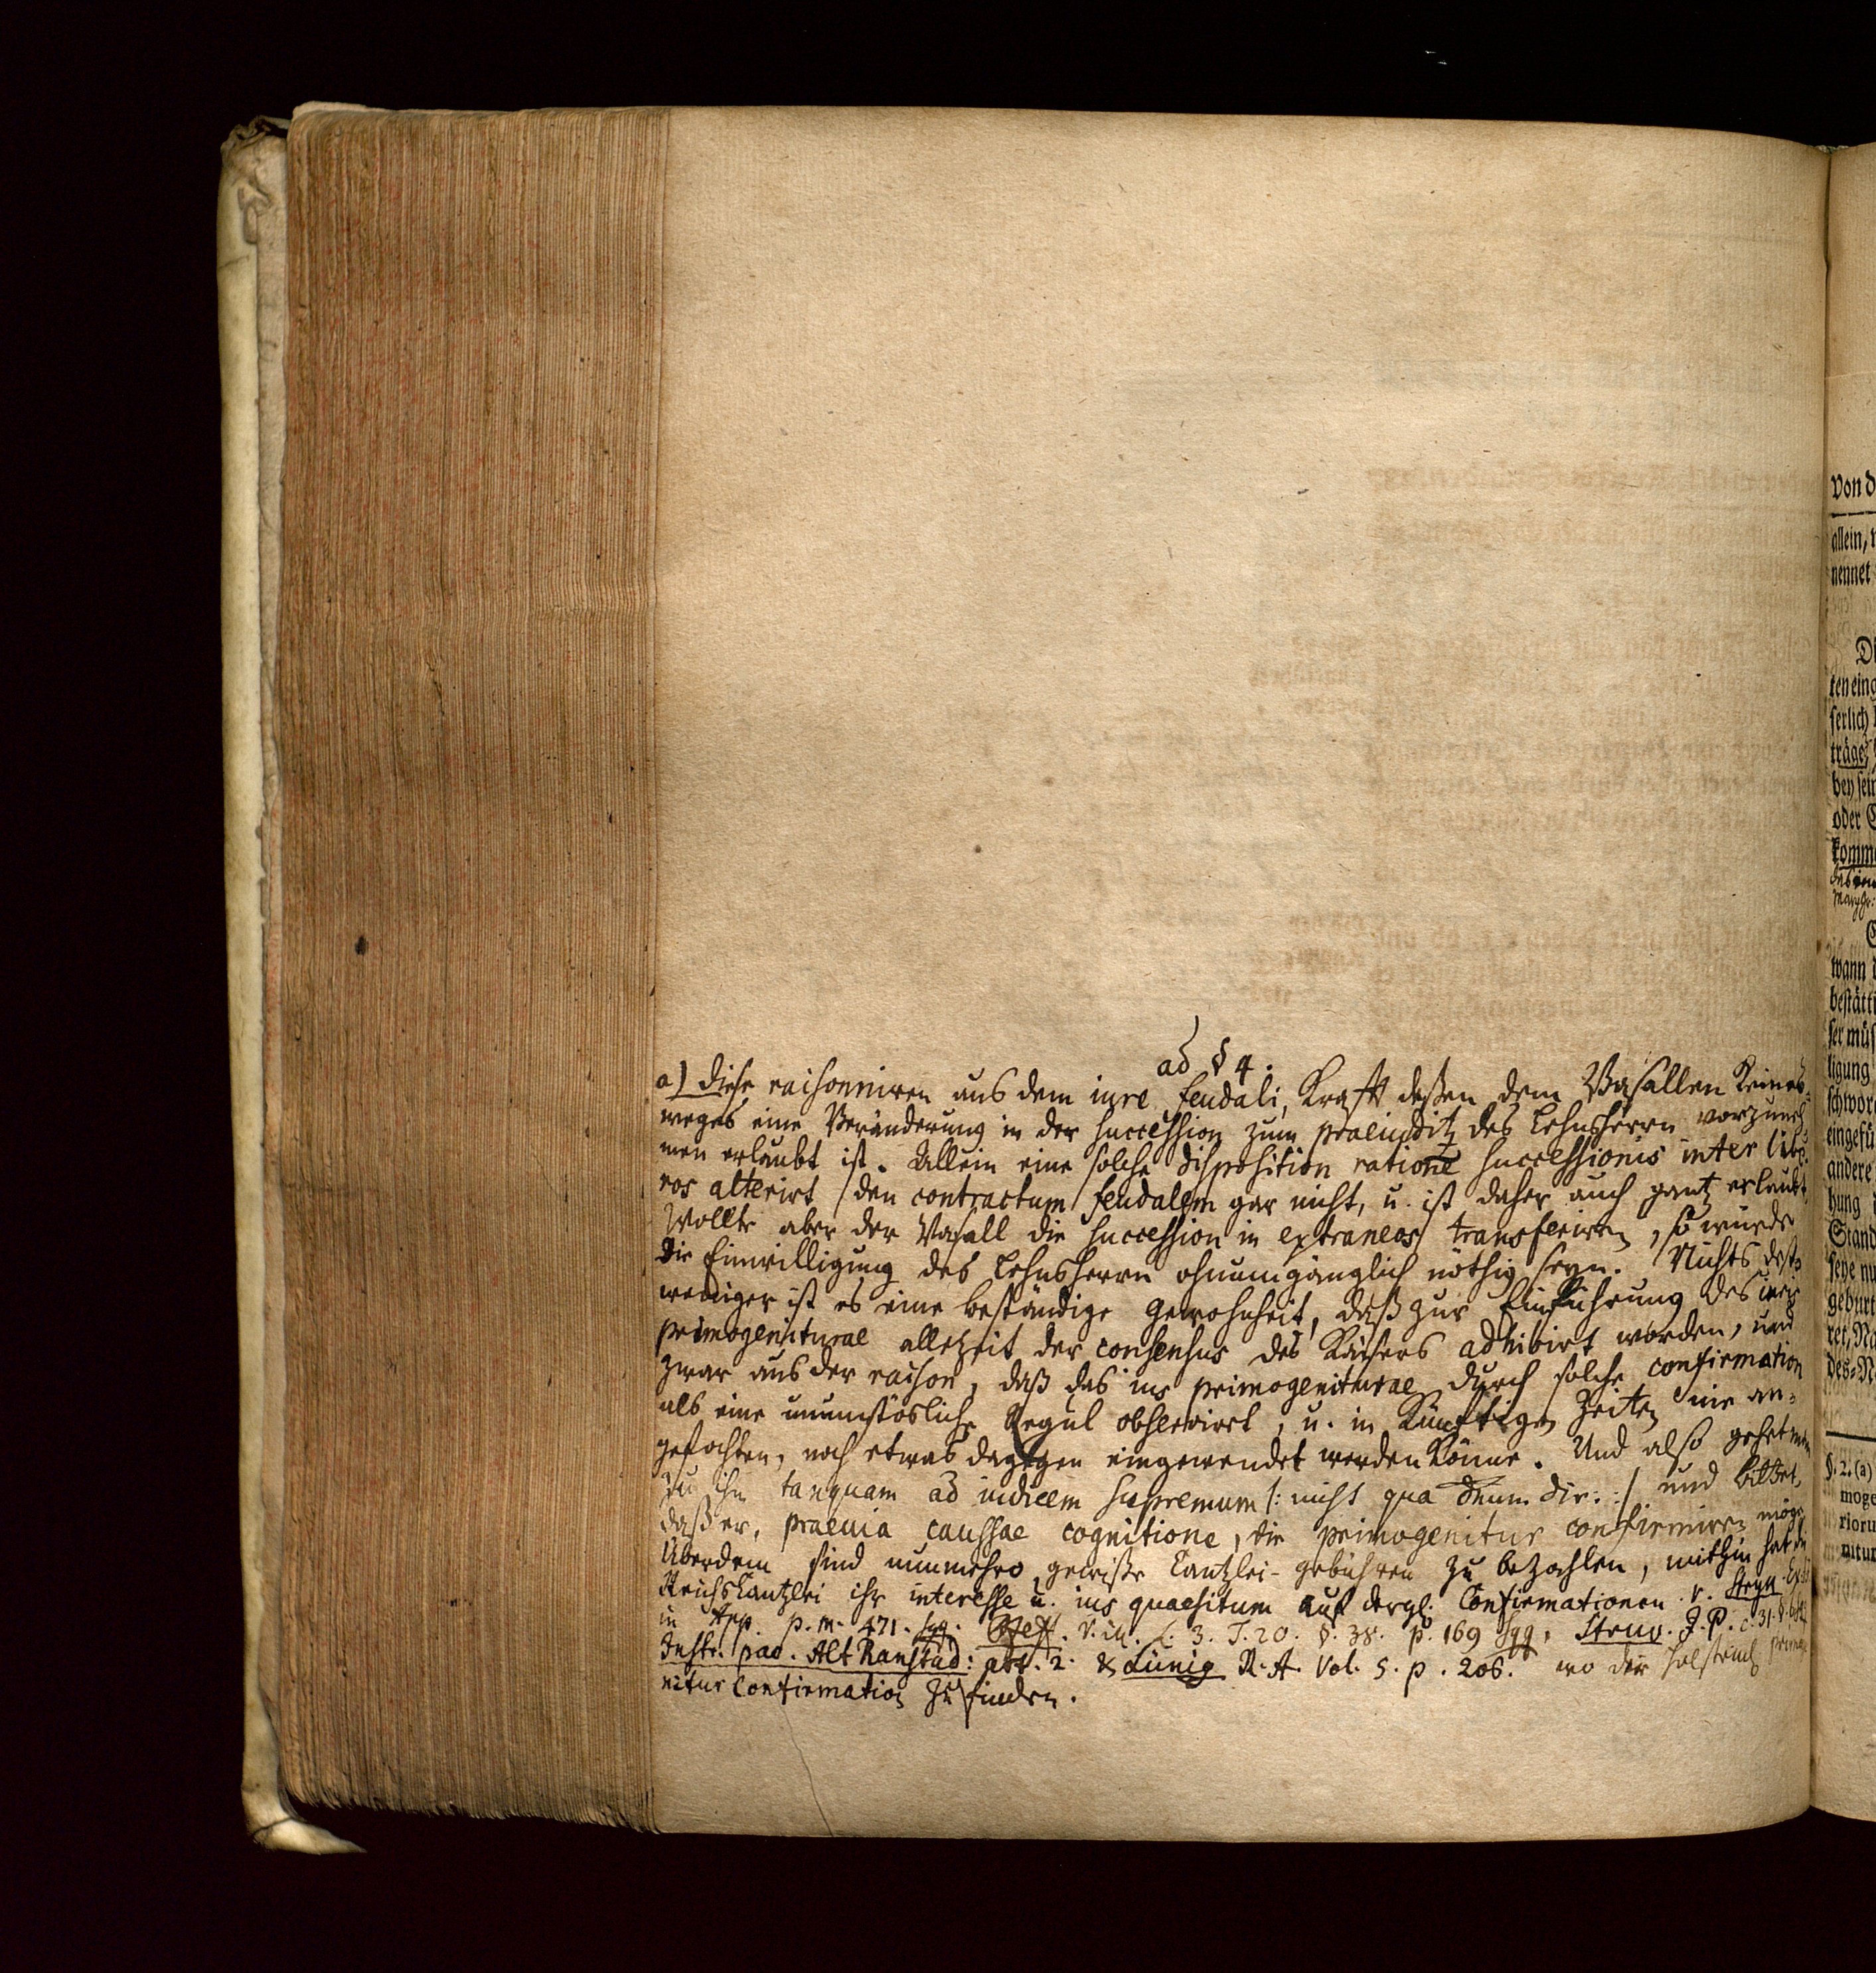 ad § 4.
a) Diese raisonniren aus dem iure feudali, Krafft deßen dem Vasallen Keines-
weges eine Veränderung in der succession zum praeiuditz des Lehnsherrn vorzuneh
men erlaubt ist. Allein eine solche disposition ratione successionis inter libe-
ros alterirt den contractum feudalem gar nicht, u. ist daher auch gantz erlaubt,
Wollte aber der Vasall die succession in extraneos transferiren, so würde
die Einwilligung des Lehnsherrn ohnumgänglich nöthig seyn. Nichts desto
weniger ist es eine beständige Gewohnheit, daß zur Einführung des iuris
primogeniturae allezeit der consensus des Kaisers adhibirt worden, und
zwar aus der raison, daß das ius primogeniturae durch solche confirmation
als eine unumstösliche Regul observirt, u. in Künfftigen Zeiten nie an-
gefochten, noch etwas dagegen eingewendet werden Könne. Und also gehet man
zu ihm tanquam ad iudicem supremum /: nicht qua Dnum dir. :/ und bittet,
daß er, praeuia caussae cognitione, die primogenitur confirmiren möge
Überdem sind nunmehro gewiße Cantzlei-gebühren zu bezahlen, mithin hat die
ReichsCantzlei ihr interesse u. ius quaesitum auf dergl. Confirmationen. v.
in App. p. m. 471. sqq. Pfeff. V. ill. L. 3. T. 20. §. 38. p. 169 sqq. Struv. J. P. c. 31. §.
Instr. pac. Alt Ranstad: art. 2. & Lünig R. A. Vol. 5. p. 206. wo die Holstein primoge
nitur Confirmation zu finden.
Von d
allein,
nennet
Di
ten eing
serlich
träge,
bey sein
oder
komm
wann
bestätti
ser müs
ligung
schwor
eingefü
andere
hung
Stand
seye nu
geburt
ret, Na
des-R
§. 2. (a)
moge
rioru
nitur